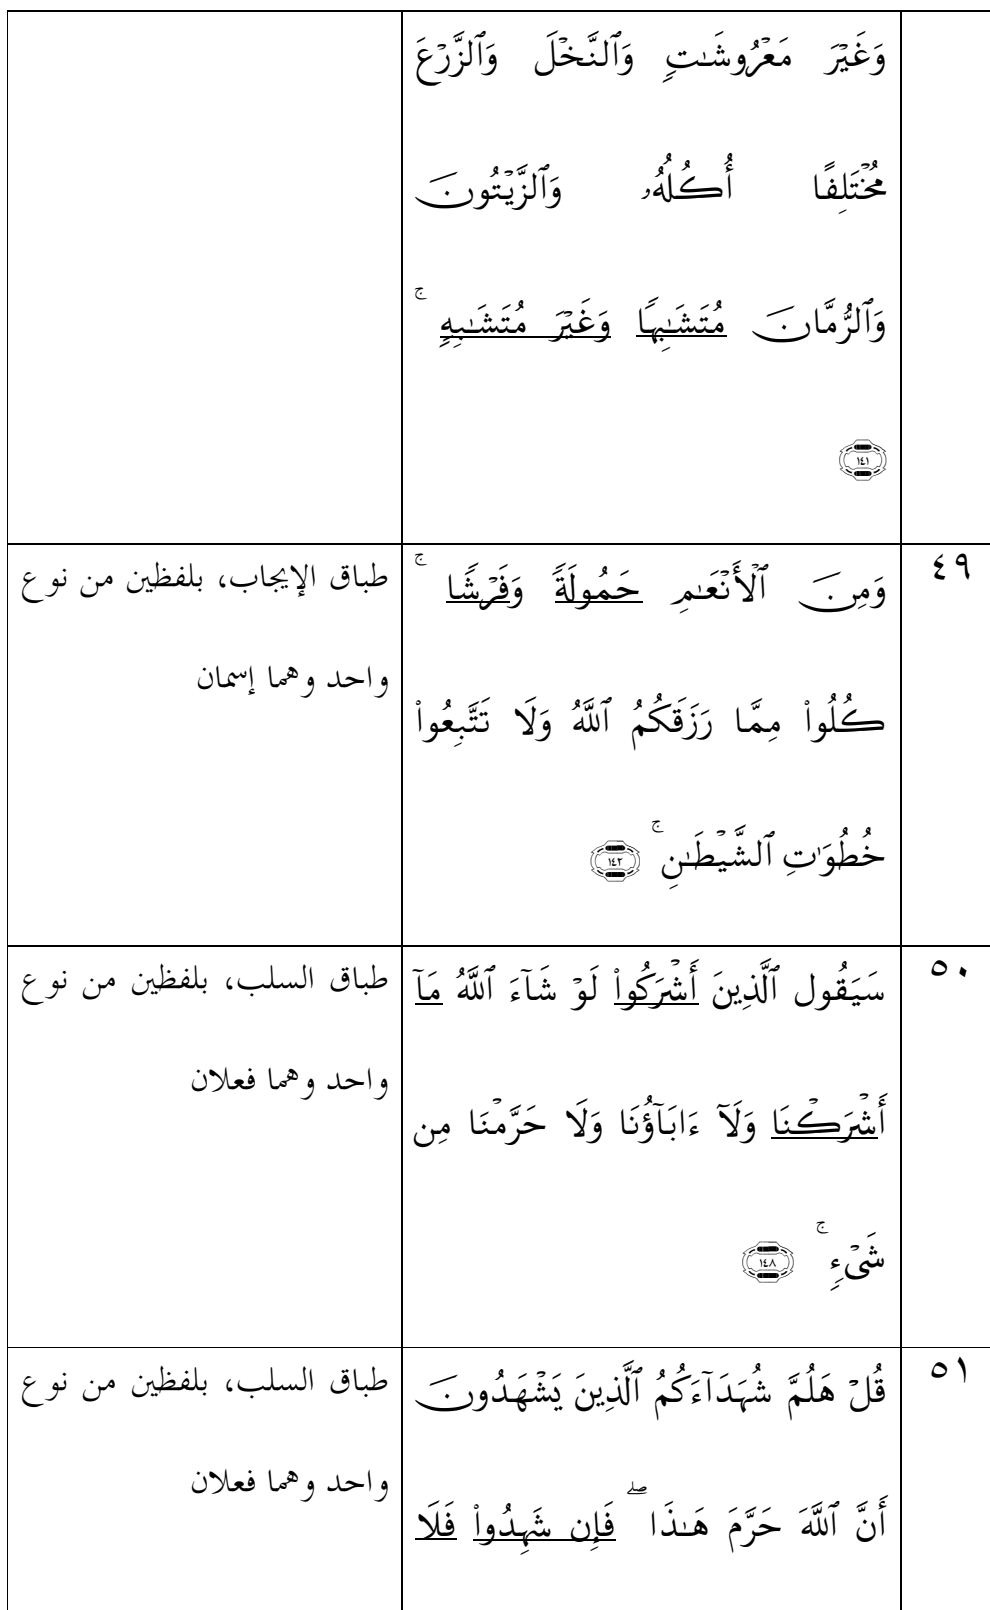 وَغَيْرَ مَعْرُوشَـٰتٍ وَٱلنَّخْلَ وَٱلزَّرْعَ
مُخْتَلِفًا أُكُلُهُۥ وَٱلزَّيْتُونَ
وَٱلرُّمَّانَ مُتَشَـٰبِهًا وَغَيْرَ مُتَشَـٰبِهٍ ۚ
١٤١
٤٩
وَمِنَ ٱلْأَنْعَـٰمِ حَمُولَةً وَفَرْشًا ۚ
كُلُوا۟ مِمَّا رَزَقَكُمُ ٱللَّهُ وَلَا تَتَّبِعُوا۟
خُطُوَٰتِ ٱلشَّيْطَـٰنِ ۚ ١٤٢
طباق الإيجاب، بلفظين من نوع
واحد وهما إسمان
٥٠
سَيَقُول ٱلَّذِينَ أَشْرَكُوا۟ لَوْ شَآءَ ٱللَّهُ مَآ
أَشْرَكْنَا وَلَآ ءَابَآؤُنَا وَلَا حَرَّمْنَا مِن
شَىْءٍ ۚ ١٤٨
طباق السلب، بلفظين من نوع
واحد وهما فعلان
٥١
قُلْ هَلُمَّ شُهَدَآءَكُمُ ٱلَّذِينَ يَشْهَدُونَ
أَنَّ ٱللَّهَ حَرَّمَ هَـٰذَا ۖ فَإِن شَهِدُوا۟ فَلَا
طباق السلب، بلفظين من نوع
واحد وهما فعلان